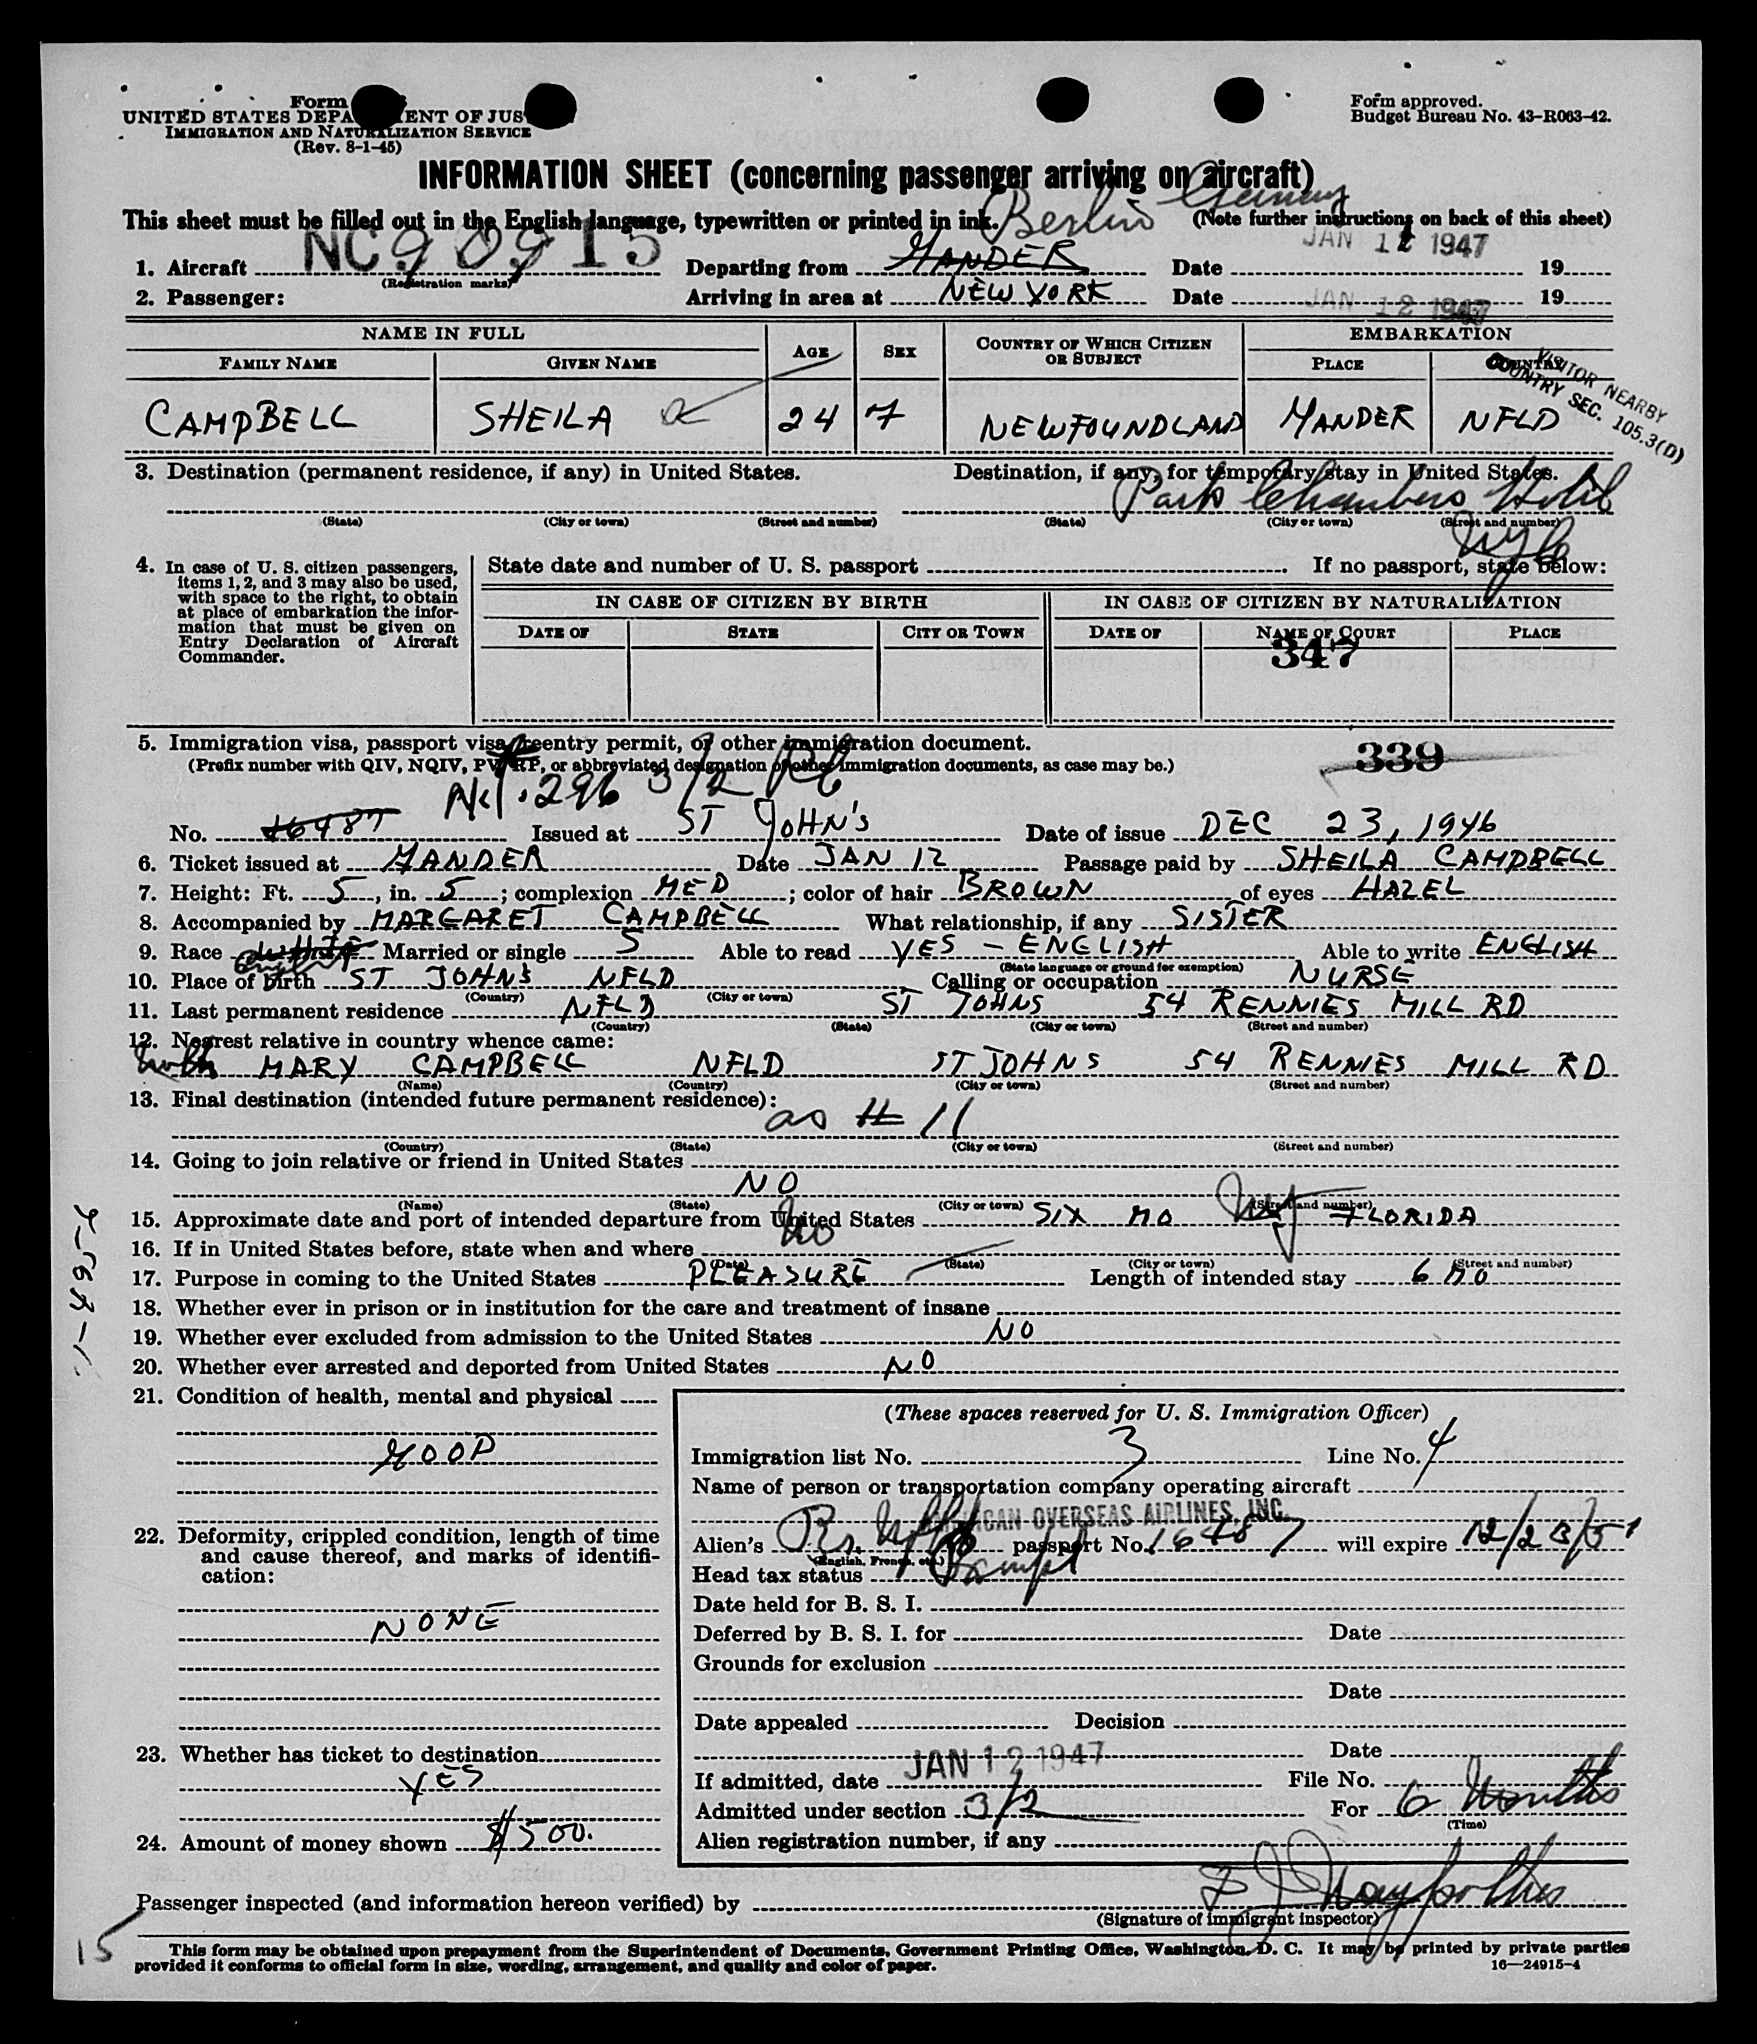 Form
UNITED STATES DEPA ENT OF JUS
IMMIGRATION AND NATURALIZATION SERVICE
(Rev. 8-1-45)
Form approved.
Budget Bureau No. 43-R063-42.
INFORMATION SHEET (concerning passenger arriving on aircraft)
This sheet must be filled out in the English language, typewritten or printed in ink. (Note further instructions on back of this sheet)
Berlin Germany
1. Aircraft NC 90915 Departing from GANDER Date JAN 12 1947 19
(Registration marks)
2. Passenger: Arriving in area at NEW YORK Date JAN 12 1947 19
NAME IN FULL AGE SEX COUNTRY OF WHICH CITIZEN OR SUBJECT EMBARKATION
FAMILY NAME GIVEN NAME PLACE COUNTRY
VISITOR NEARBY
COUNTRY SEC. 105.3(D)
CAMPBELL SHEILA 24 F NEWFOUNDLAND GANDER NFLD
3. Destination (permanent residence, if any) in United States. Destination, if any, for temporary stay in United States.
Park Chambers Hotel
(State) (City or town) (Street and number) (State) (City or town) (Street and number)
NYC
4. In case of U. S. citizen passengers, items 1, 2, and 3 may also be used, with space to the right, to obtain at place of embarkation the information that must be given on Entry Declaration of Aircraft Commander.
State date and number of U. S. passport If no passport, state below:
IN CASE OF CITIZEN BY BIRTH IN CASE OF CITIZEN BY NATURALIZATION
DATE OF STATE CITY OR TOWN DATE OF NAME OF COURT PLACE
347
5. Immigration visa, passport visa, reentry permit, or other immigration document.
(Prefix number with QIV, NQIV, PV, RP, or abbreviated designation of other immigration documents, as case may be.)
339
296 3/2
No. 16487 Issued at ST JOHN'S Date of issue DEC 23, 1946
6. Ticket issued at GANDER Date JAN 12 Passage paid by SHEILA CAMPBELL
7. Height: Ft. 5, in. 5; complexion MED; color of hair BROWN of eyes HAZEL
8. Accompanied by MARGARET CAMPBELL What relationship, if any SISTER
9. Race WHITE Married or single S Able to read YES - ENGLISH Able to write ENGLISH
English
(State language or ground for exemption)
10. Place of birth ST JOHN'S NFLD Calling or occupation NURSE
(Country) (City or town)
11. Last permanent residence NFLD ST JOHNS 54 RENNIES MILL RD
(Country) (State) (City or town) (Street and number)
12. Nearest relative in country whence came:
moth MARY CAMPBELL NFLD ST JOHNS 54 RENNIES MILL RD
(Name) (Country) (City or town) (Street and number)
13. Final destination (intended future permanent residence):
as # 11
(Country) (State) (City or town) (Street and number)
14. Going to join relative or friend in United States
NO
(Name) (State) (City or town) (Street and number)
15. Approximate date and port of intended departure from United States SIX MO NY FLORIDA
16. If in United States before, state when and where No
(Date) (State) (City or town) (Street and number)
17. Purpose in coming to the United States PLEASURE Length of intended stay 6 MO
18. Whether ever in prison or in institution for the care and treatment of insane
19. Whether ever excluded from admission to the United States NO
20. Whether ever arrested and deported from United States NO
21. Condition of health, mental and physical
GOOD
22. Deformity, crippled condition, length of time and cause thereof, and marks of identification:
NONE
23. Whether has ticket to destination
YES
24. Amount of money shown $500.
(These spaces reserved for U. S. Immigration Officer)
Immigration list No. 3 Line No. 4
Name of person or transportation company operating aircraft
AMERICAN OVERSEAS AIRLINES, INC.
Alien's Br. Nfld passport No. 16487 will expire 12/23/51
(English, French, etc.)
Head tax status Exempt
Date held for B. S. I.
Deferred by B. S. I. for Date
Grounds for exclusion
Date
Date appealed Decision
Date
If admitted, date JAN 12 1947 File No.
Admitted under section 3/2 For 6 Months
(Time)
Alien registration number, if any
Passenger inspected (and information hereon verified) by
(Signature of immigrant inspector)
15
This form may be obtained upon prepayment from the Superintendent of Documents, Government Printing Office, Washington, D. C. It may be printed by private parties
provided it conforms to official form in size, wording, arrangement, and quality and color of paper.
16—24915-4